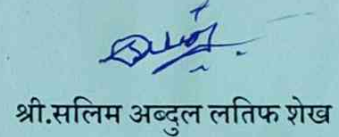 श्री.सलिम अब्दुल लतिफ शेख